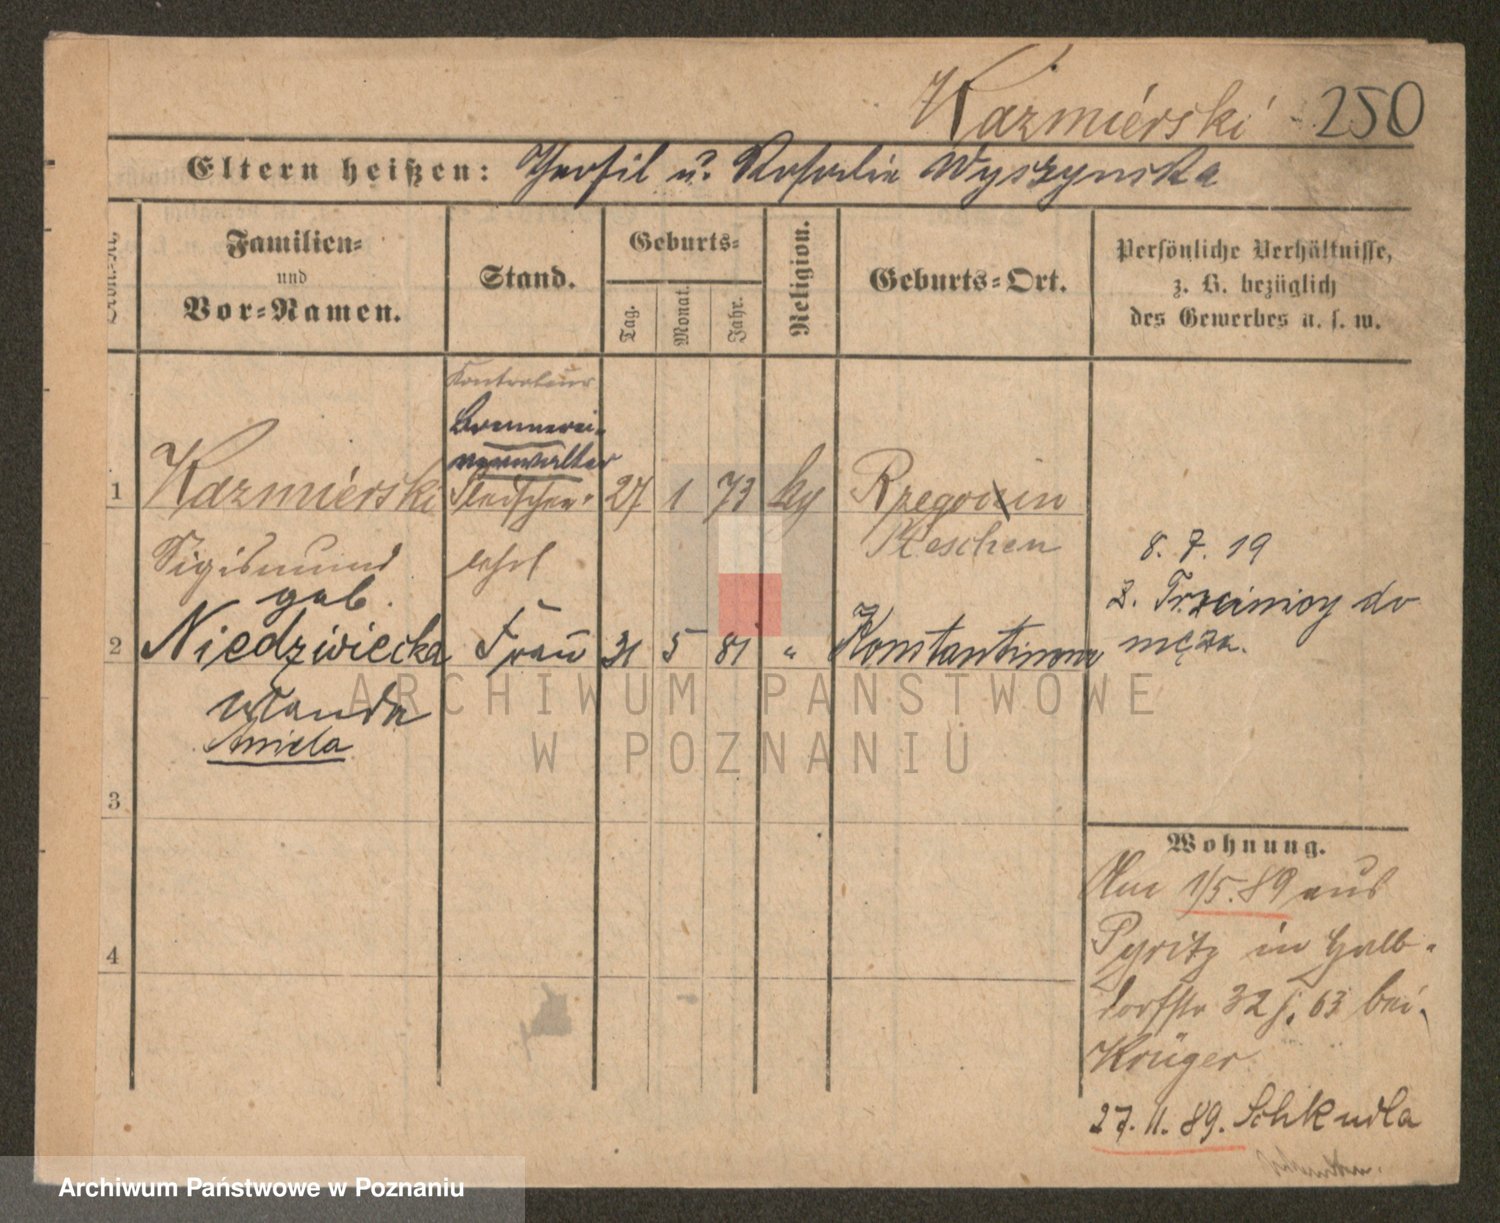 Kazmiérski 250
Eltern heißen: Theofil u. Rosalie Wyszynska
Familien-
und
Vor-Namen.
Stand.
Geburts-
Tag.
Monat.
Jahr.
Religion.
Geburts-Ort.
Persönliche Verhältnisse,
z. B. bezüglich
des Gewerbes u. s. w.
Kontroleur
Brennerei-
verwalter
1 Kazmiérski Fleischer- 27 1 73 kg Rzegocin
Sigismund lehrl Pleschen
geb.
2 Niedzwiecka Frau 31 5 81 " Konstantinowo
Wanda
Aniela
8. 7. 19
z. Trzcinicy do
męża.
3
4
Wohnung.
Am 1/5. 89 aus
Pyritz in Halb-
dorfstr 32 j. 63 bei
Krüger
27. 11. 89. Schkudla
ARCHIWUM PAŃSTWOWE
W POZNANIU
Archiwum Państwowe w Poznaniu